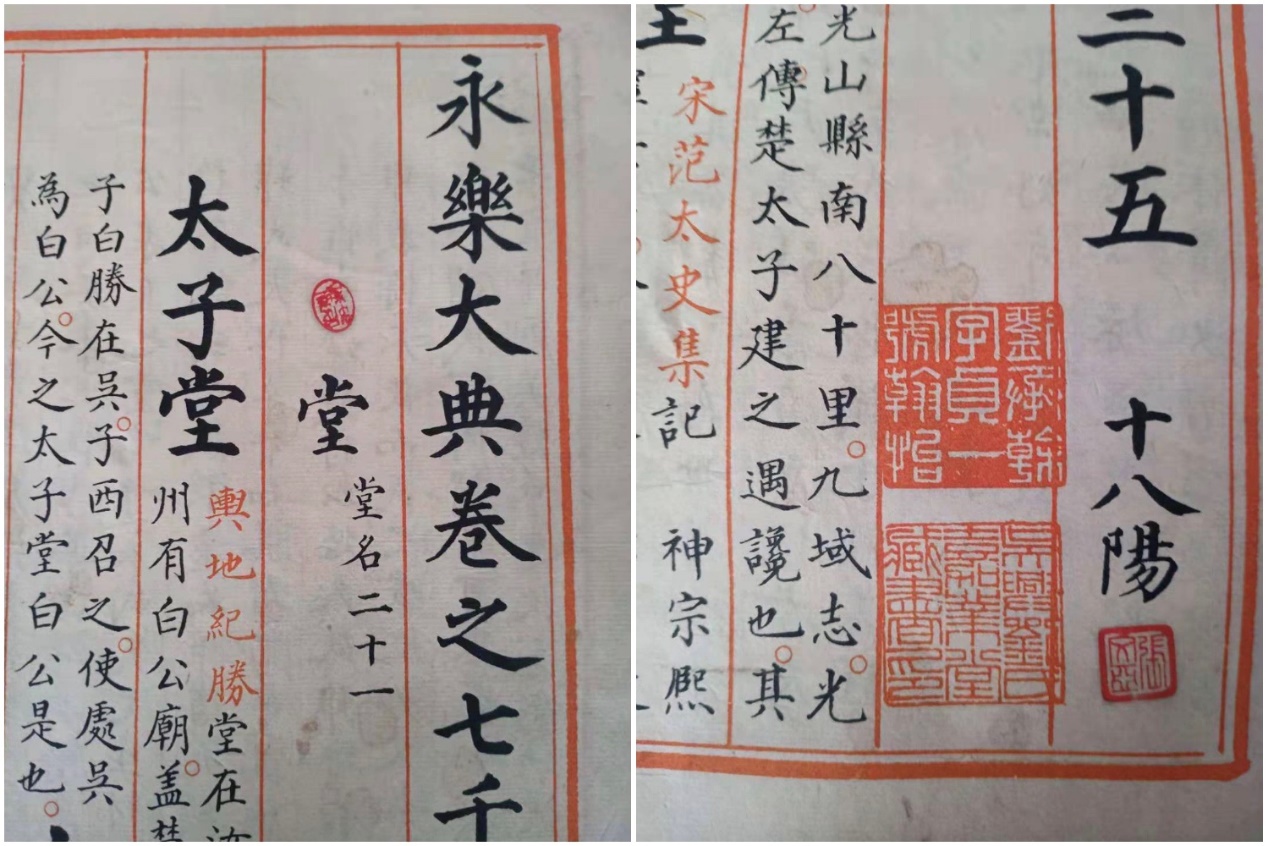 永樂大典卷之七千
堂 堂名二十一
太子堂
輿地紀勝堂在汝
州有白公廟。蓋楚
子白勝在吳。子西召之。使處吳
為白公。今之太子堂白公是也。
二十五 十八陽
劉承幹
字貞一
號翰怡
吳興劉氏
嘉業堂
藏書印
光山縣南八十里。九域志。光
左傳楚太子建之遇讒也。其
宋范太史集記 神宗熙